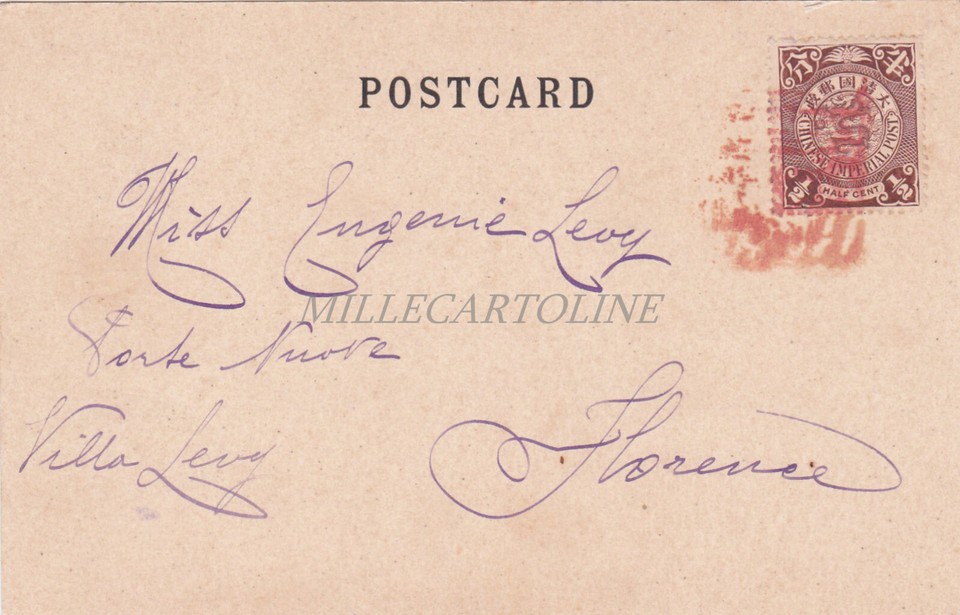 POSTCARD
分 半
大清國郵政
CHINESE IMPERIAL POST
½ HALF CENT ½
Miss Eugenie Levy
MILLECARTOLINE
Porte Nuove
Villa Levy
Florence